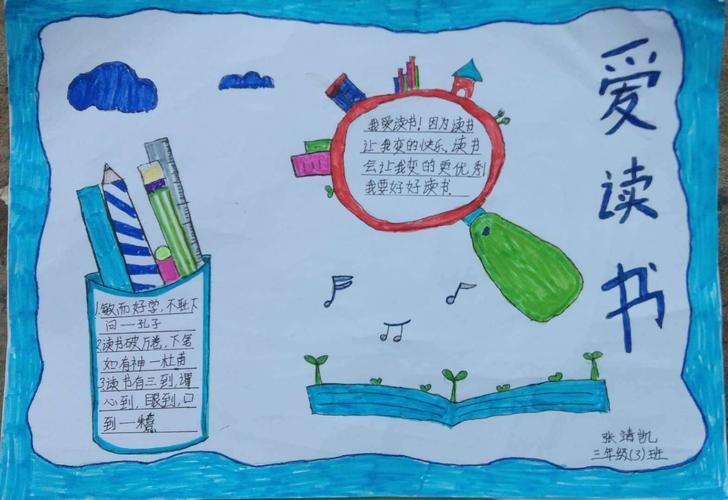 爱读书
我爱读书！因为读书
让我变的快乐、读书
会让我变的更优秀
我要好好读书.
1.敏而好学,不耻下
问一孔子
2读书破万卷,下笔
如有神一杜甫
3读书有三到,谓
心到,眼到,口
到一朱熹
张靖凯
三年级(3)班